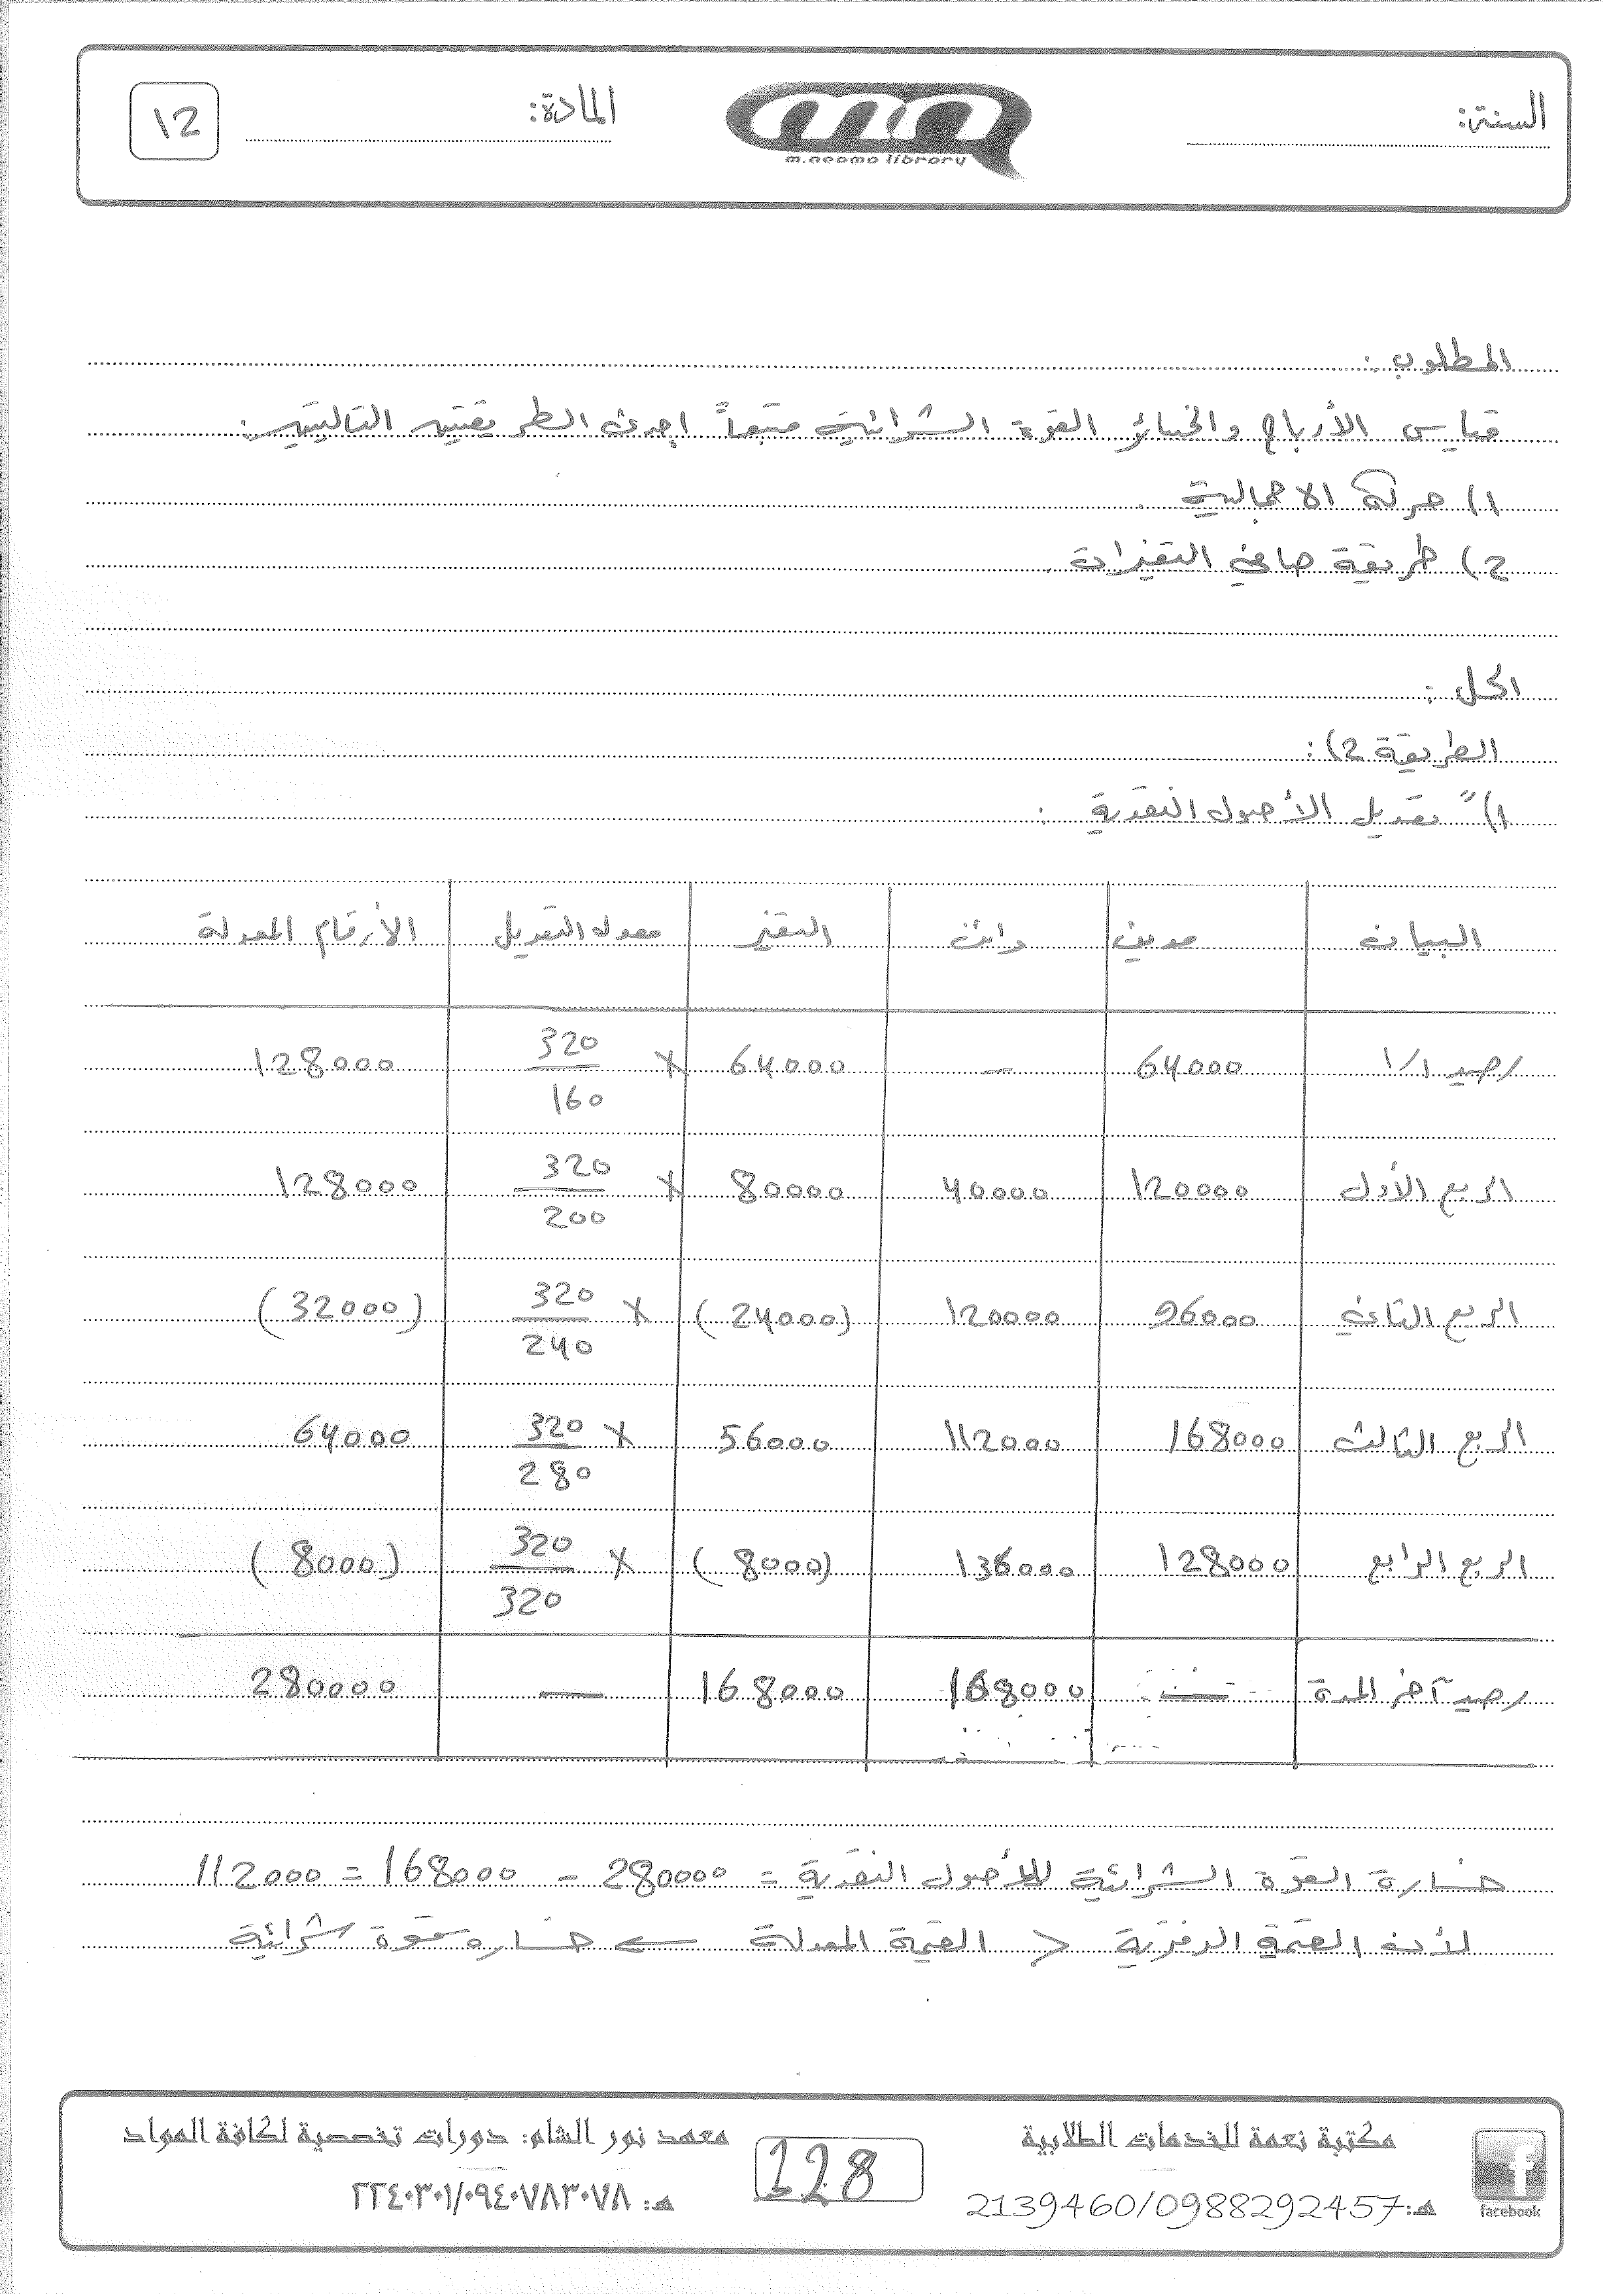 السنة:
m.neama library
المادة:
12
المطلوب :
قياس الأرباح والخسائر القوة الشرائية متبعاً إحدى الطريقتين التاليتين:
1) حركة الاجمالية .
2) طريقة صافي التغيرات .
الحل :
الطريقة 2):
1)" تعديل الأصول النقدية :
البيان مدين دائن التغير معدل التعديل الأرقام المعدلة
رصيد 1/1 64000 — 64000 × 320/160 128000
الربع الأول 120000 40000 80000 × 320/200 128000
الربع الثاني 96000 120000 (24000) × 320/240 (32000)
الربع الثالث 168000 112000 56000 × 320/280 64000
الربع الرابع 128000 136000 (8000) × 320/320 (8000)
رصيد آخر المدة — 168000 168000 — 280000
خسارة القوة الشرائية للأصول النقدية = 280000 - 168000 = 112000
لأن القيمة الدفترية > القيمة المعدلة ← خسارة قوة شرائية
مكتبة نعمة للخدمات الطلابية
هـ: 2139460/0988292457
facebook
128
معهد نور الشام: دورات تخصصية لكافة المواد
هـ: ٢٢٤٠٣٠١/٠٩٤٠٧٨٣٠٧٨